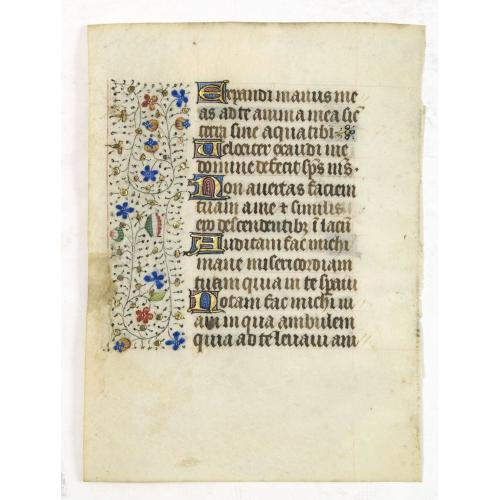 Expandi manus me
as ad te anima mea sic
terra sine aqua tibi
Velociter exaudi me
domine defecit sps ms.
Non avertas faciem
tuam a me & similis
ero descendentib; i lacu
Auditam fac michi
mane misericordiam
tuam quia in te speravi
Notam fac michi vi
am in qua ambulem
quia ad te levavi am